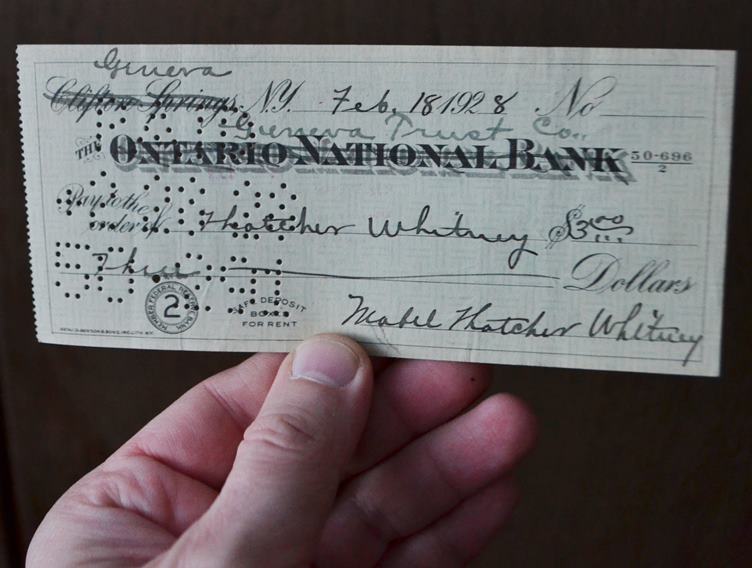 Geneva
Clifton Springs, N.Y. Feb. 18 1928 No
Geneva Trust Co.
THE ONTARIO NATIONAL BANK 50-696
2
Pay to the
order of Thatcher Whitney $3.00
Three Dollars
MEMBER FEDERAL RESERVE BANK
2
SAFE DEPOSIT
BOXES
FOR RENT
Mabel Thatcher Whitney